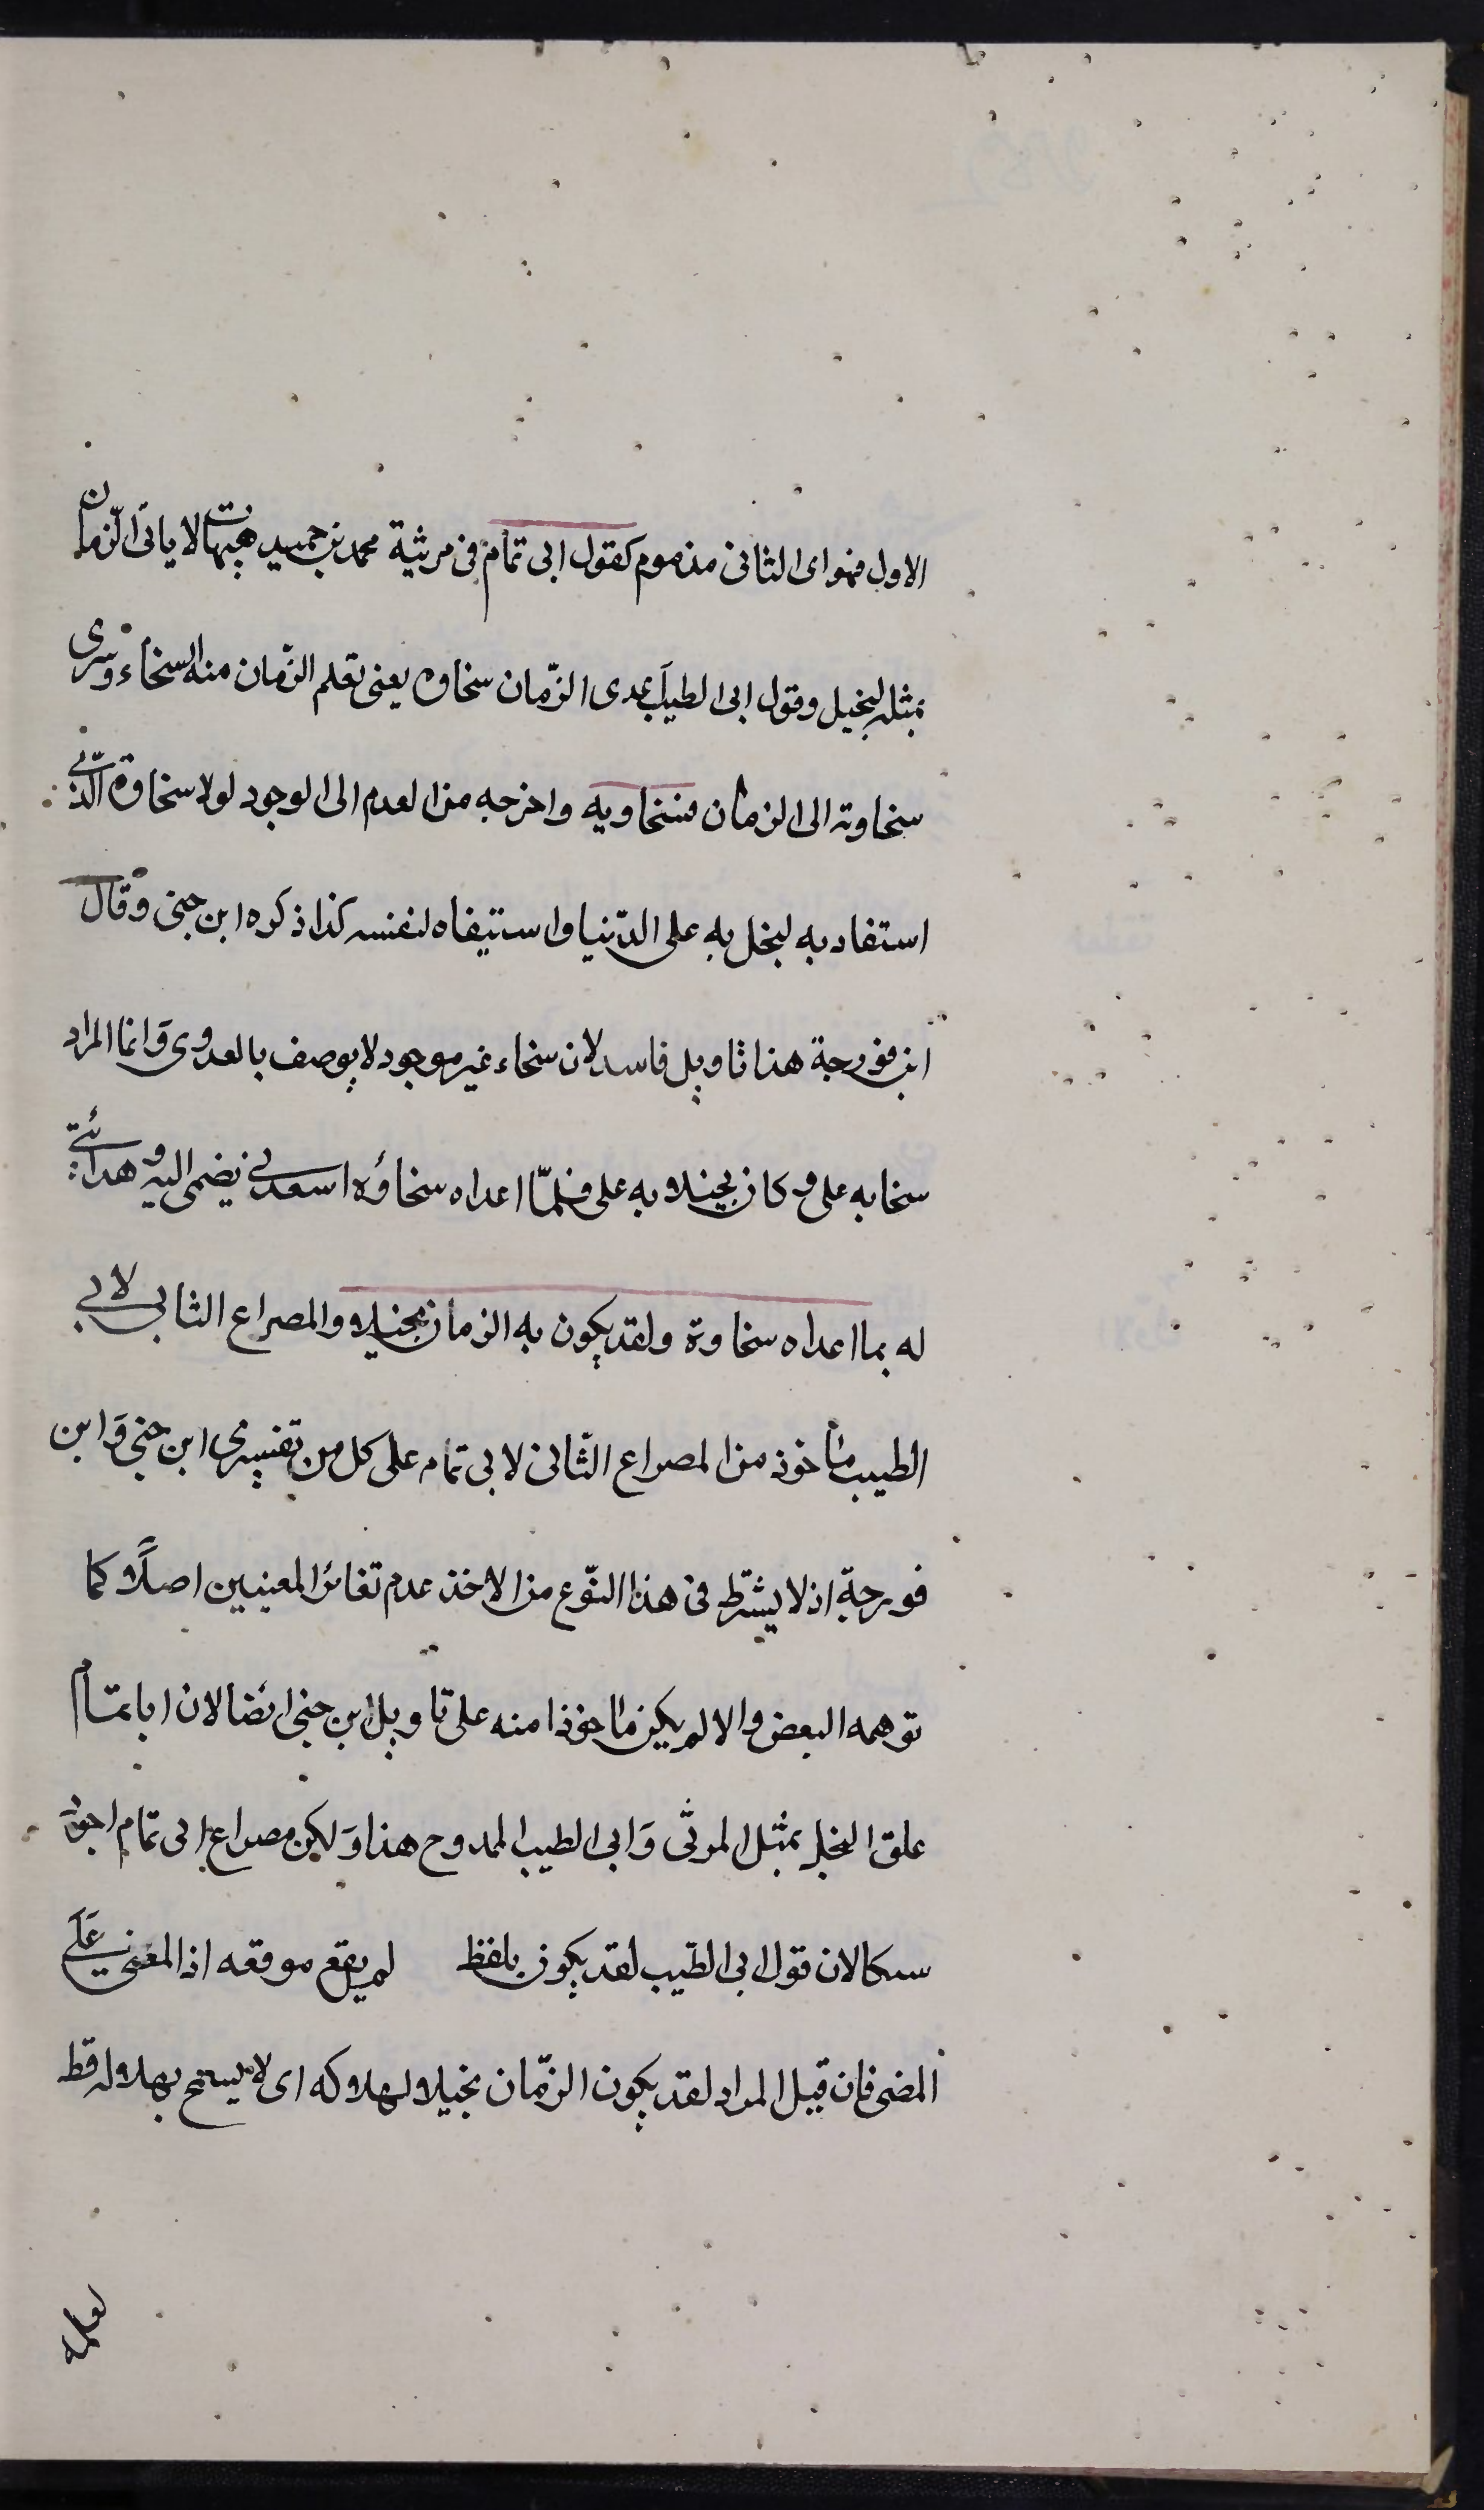 الاول فهو اى الثانى مذموم كقول ابى تمام فى مرثية محمد بن حميد هيهات لا ياتى الزمان
بمثله لبخيل وقول ابى الطيب اعدى الزمان سخاوه يعنى تعلم الزمان منه السخاء وسرى
سخاوته الى الزمان فسخا به واخرجه من العدم الى الوجود لولا سخاوه الذى
استفاد به لبخل به على الدنيا واستبقاه لنفسه كذا ذكره ابن جنى وقال
ابن فورجة هذا تاويل فاسد لان سخاء غير موجود لا يوصف بالعدوى وانما المراد
سخا به على وكان بخيلا به على فلما اعداه سخاؤه اسعدنى بضمى اليه وهدايتى
له بما اعداه سخاوة ولقد يكون به الزمان بخيلا والمصراع الثانى لابى
الطيب ماخوذ من المصراع الثانى لابى تمام على كل من تفسيرى ابن جنى وابن
فورجة اذ لا يشترط فى هذا النوع من الاخذ عدم تغائر المعنيين اصلا كما
توهمه البعض والا لم يكن ماخوذا منه على تاويل ابن جنى ايضا لان ابا تمام
علق البخل بمثل المرثى وابى الطيب الممدوح هذا ولكن مصراع ابى تمام اجود
سبكا لان قول ابى الطيب لقد يكون بلفظ لم يقع موقعه اذ المعنى على
المضى فان قيل المراد لقد يكون الزمان بخيلا لهلاكه اى لا يسمح بهلاكه قط
لعلمه